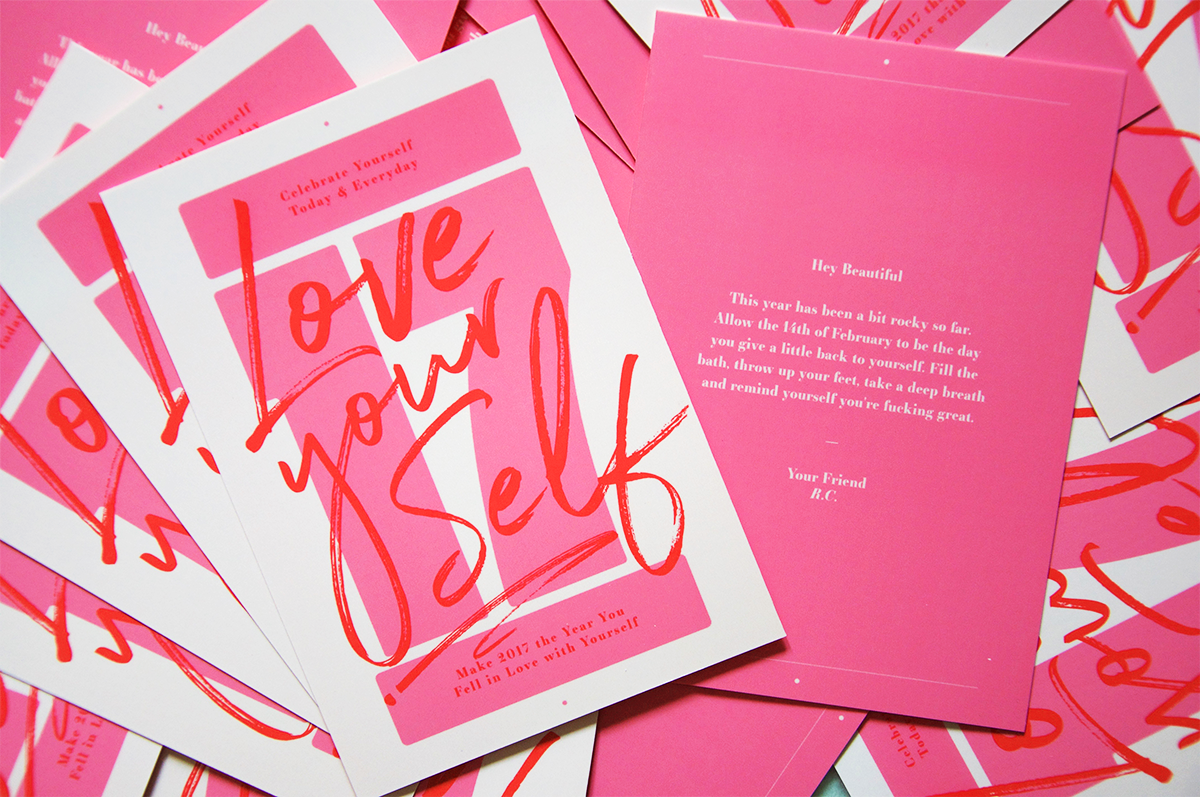 Celebrate Yourself
Today & Everyday
Love
your
Self
Make 2017 the Year You
Fell in Love with Yourself
Hey Beautiful
This year has been a bit rocky so far.
Allow the 14th of February to be the day
you give a little back to yourself. Fill the
bath, throw up your feet, take a deep breath
and remind yourself you're fucking great.
—
Your Friend
R.C.